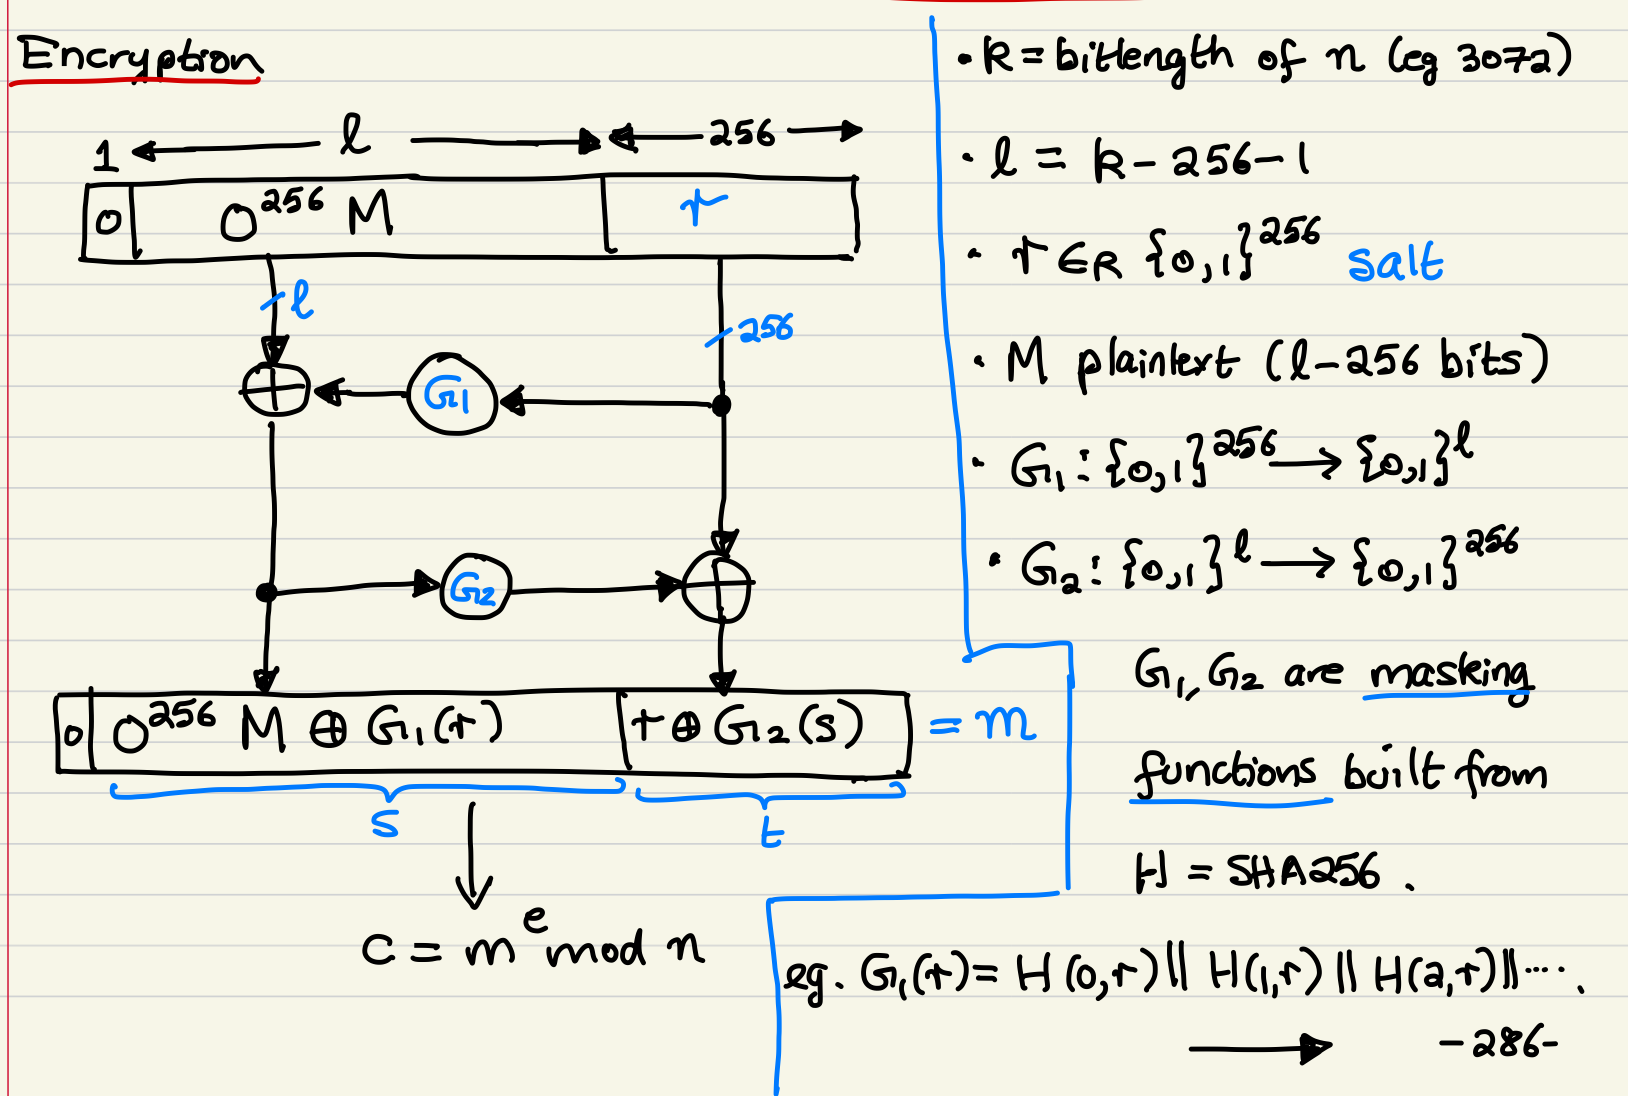 Encryption
1 l 256
0 0²⁵⁶ M r
l
256
G₁
G₂
0 0²⁵⁶ M ⊕ G₁(r) r ⊕ G₂(s) = m
s t
c = mᵉ mod n
• k = bitlength of n (eg 3072)
• l = k - 256 - 1
• r ∈R {0,1}²⁵⁶ salt
• M plaintext (l-256 bits)
• G₁: {0,1}²⁵⁶ → {0,1}ˡ
• G₂: {0,1}ˡ → {0,1}²⁵⁶
G₁, G₂ are masking
functions built from
H = SHA256.
eg. G₁(r) = H(0,r) || H(1,r) || H(2,r) || ....
→ -286-